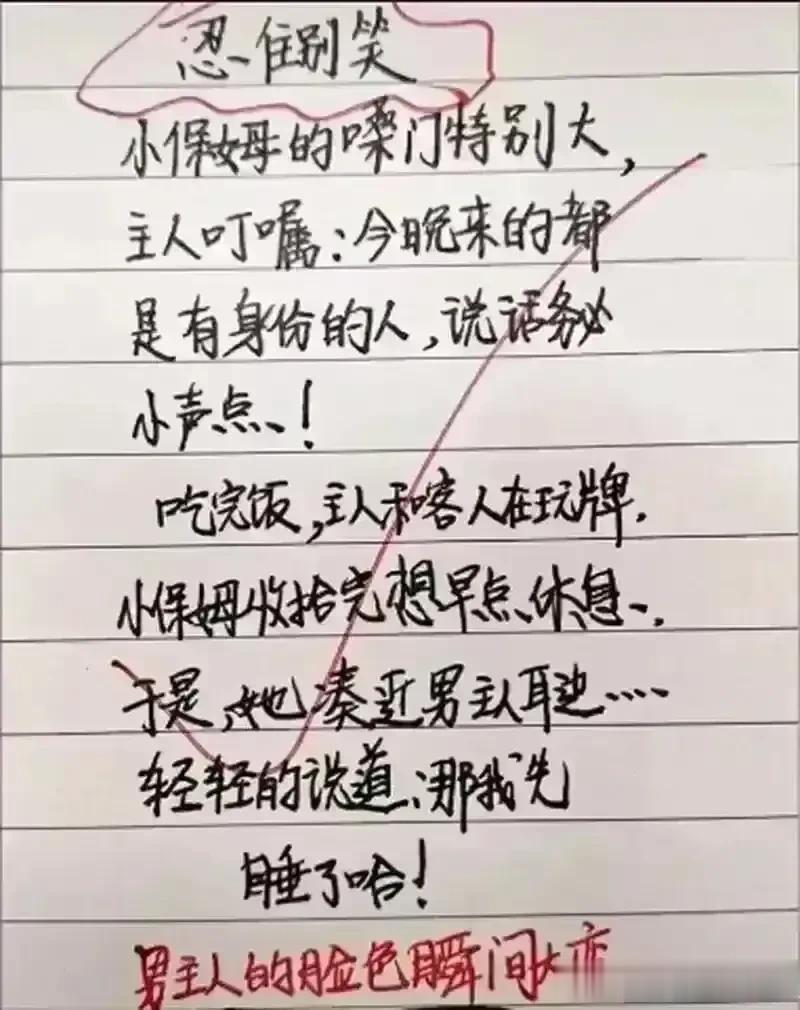 忍住别笑
小保姆的嗓门特别大,
主人叮嘱:今晚来的都
是有身份的人,说话务必
小声点!
吃完饭,主人和客人在玩牌.
小保姆收拾完想早点休息.
于是,她凑近男主人耳边····
轻轻的说道:那我先
睡了哈!
男主人的脸色瞬间大变